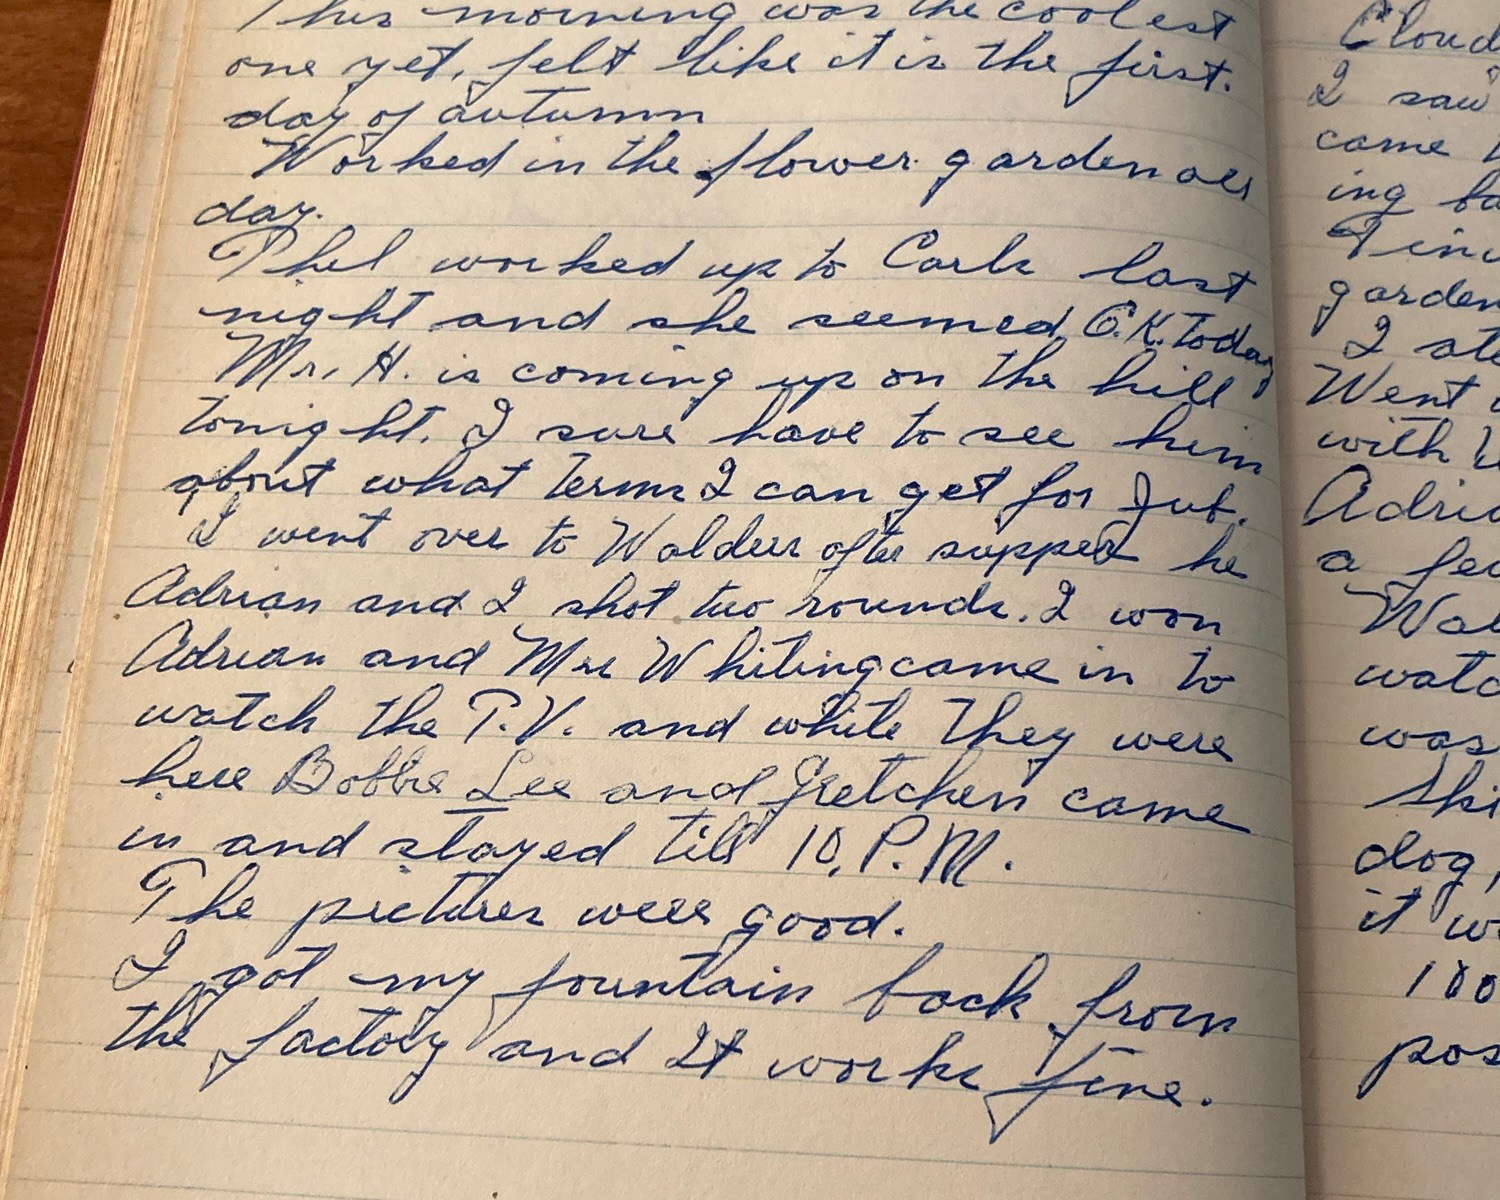 This morning was the coolest
one yet, felt like it is the first.
day of autumn
Worked in the flower garden all
day.
Phel worked up to Carls last
night and she seemed O.K. today
Mr. H. is coming up on the hill
tonight. I sure have to see him
about what terms I can get for Jub.
I went over to Walders after supper he
Adrian and I shot two rounds. I won
Adrian and Mrs Whiting came in to
watch the T.V. and while they were
here Bobbie Lee and Gretchen came
in and stayed till 10, P.M.
The pictures were good.
I got my fountain back from
the factory and It works fine.
Cloud
I saw
came
ing ba
garden
I ste
Went
with
Adria
a few
Wal
watc
was
Ski
dog,
it w
100
pos